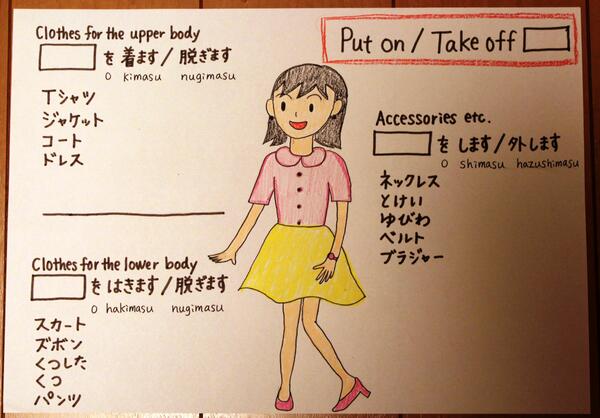 Put on / Take off
Clothes for the upper body
を 着ます / 脱ぎます
o kimasu nugimasu
Tシャツ
ジャケット
コート
ドレス
Clothes for the lower body
を はきます / 脱ぎます
o hakimasu nugimasu
スカート
ズボン
くつした
くつ
パンツ
Accessories etc.
を します / 外します
o shimasu hazushimasu
ネックレス
とけい
ゆびわ
ベルト
ブラジャー